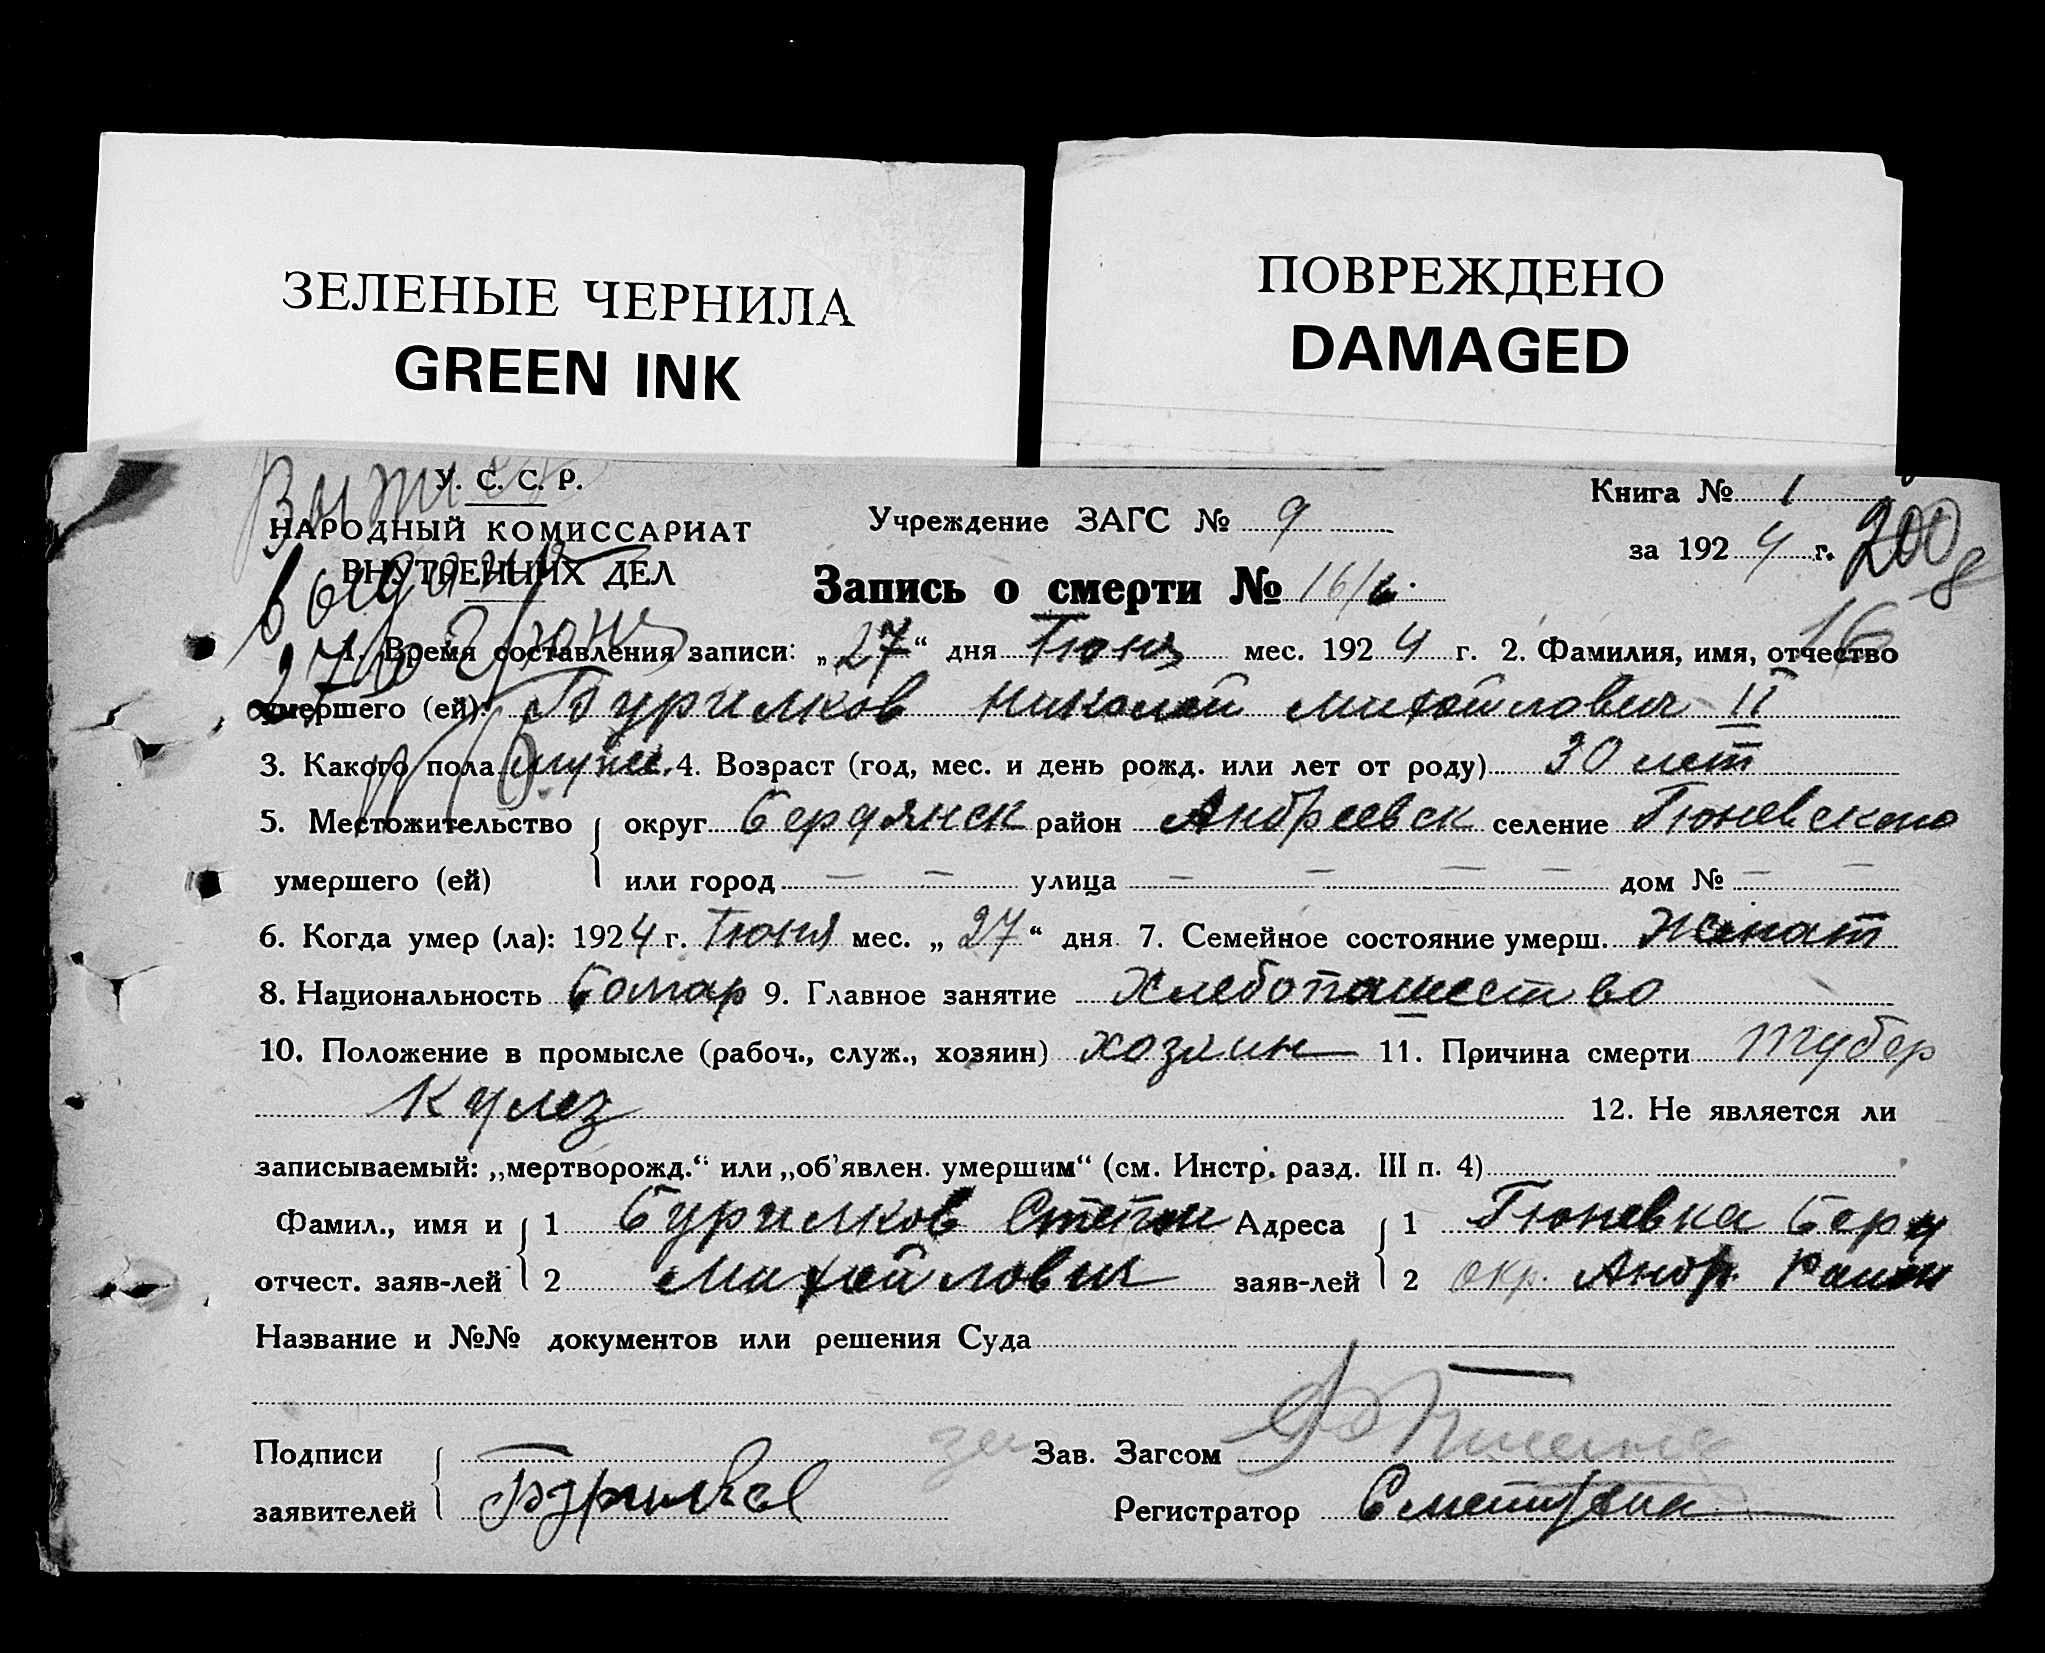 ЗЕЛЕНЫЕ ЧЕРНИЛА
GREEN INK
ПОВРЕЖДЕНО
DAMAGED
У. С. С. Р.
НАРОДНЫЙ КОМИССАРИАТ
ВНУТРЕННИХ ДЕЛ
Учреждение ЗАГС № 9
Книга № 1
за 1924 г. 200
Запись о смерти № 16/6
16
1. Время составления записи: „27“ дня Тюня мес. 1924 г. 2. Фамилия, имя, отчество
умершего (ей): Бурилков Николай Михайлович II
3. Какого пола муже. 4. Возраст (год, мес. и день рожд. или лет от роду) 30 лет
5. Местожительство округ Бердянск район Андреевск селение Тюневского
умершего (ей) или город — — улица — — — — дом № — —
6. Когда умер (ла): 1924 г. Тюня мес. „27“ дня 7. Семейное состояние умерш. Женат
8. Национальность Болгар 9. Главное занятие Хлебопашество
10. Положение в промысле (рабоч., служ., хозяин) хозяин 11. Причина смерти тубер
кулез 12. Не является ли
записываемый: „мертворожд.“ или „об'явлен. умершим“ (см. Инстр. разд. III п. 4)
Фамил., имя и 1 Бурилков Степан Адреса 1 Тюневка Берд
отчест. заяв-лей 2 Михайлович заяв-лей 2 окр. Андр. Район
Название и №№ документов или решения Суда
Подписи Зав. Загсом
заявителей Бурилков Регистратор